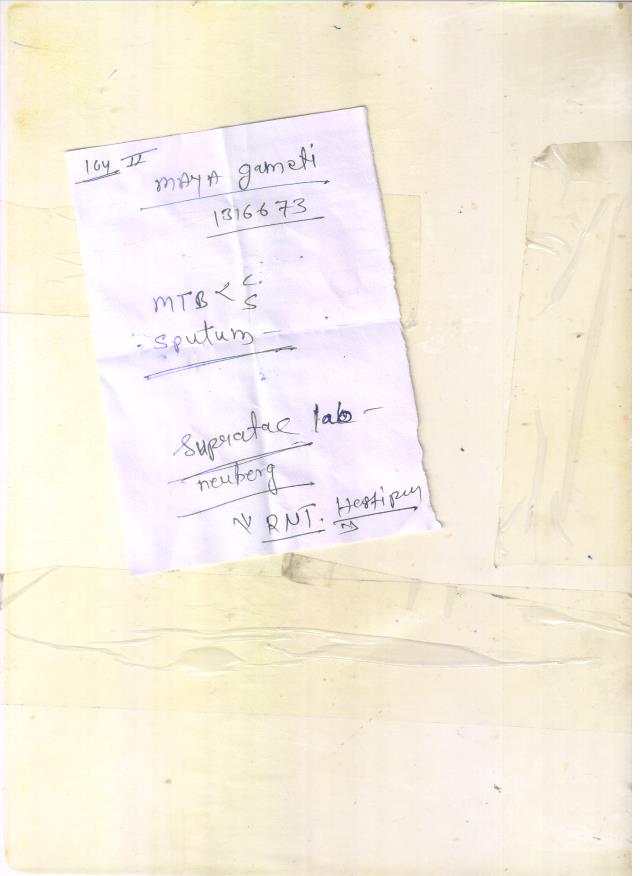 104 II
MAYA gameti
1316673
MTB < C
S
Sputum -
Supratac lab -
neuberg
RNT.